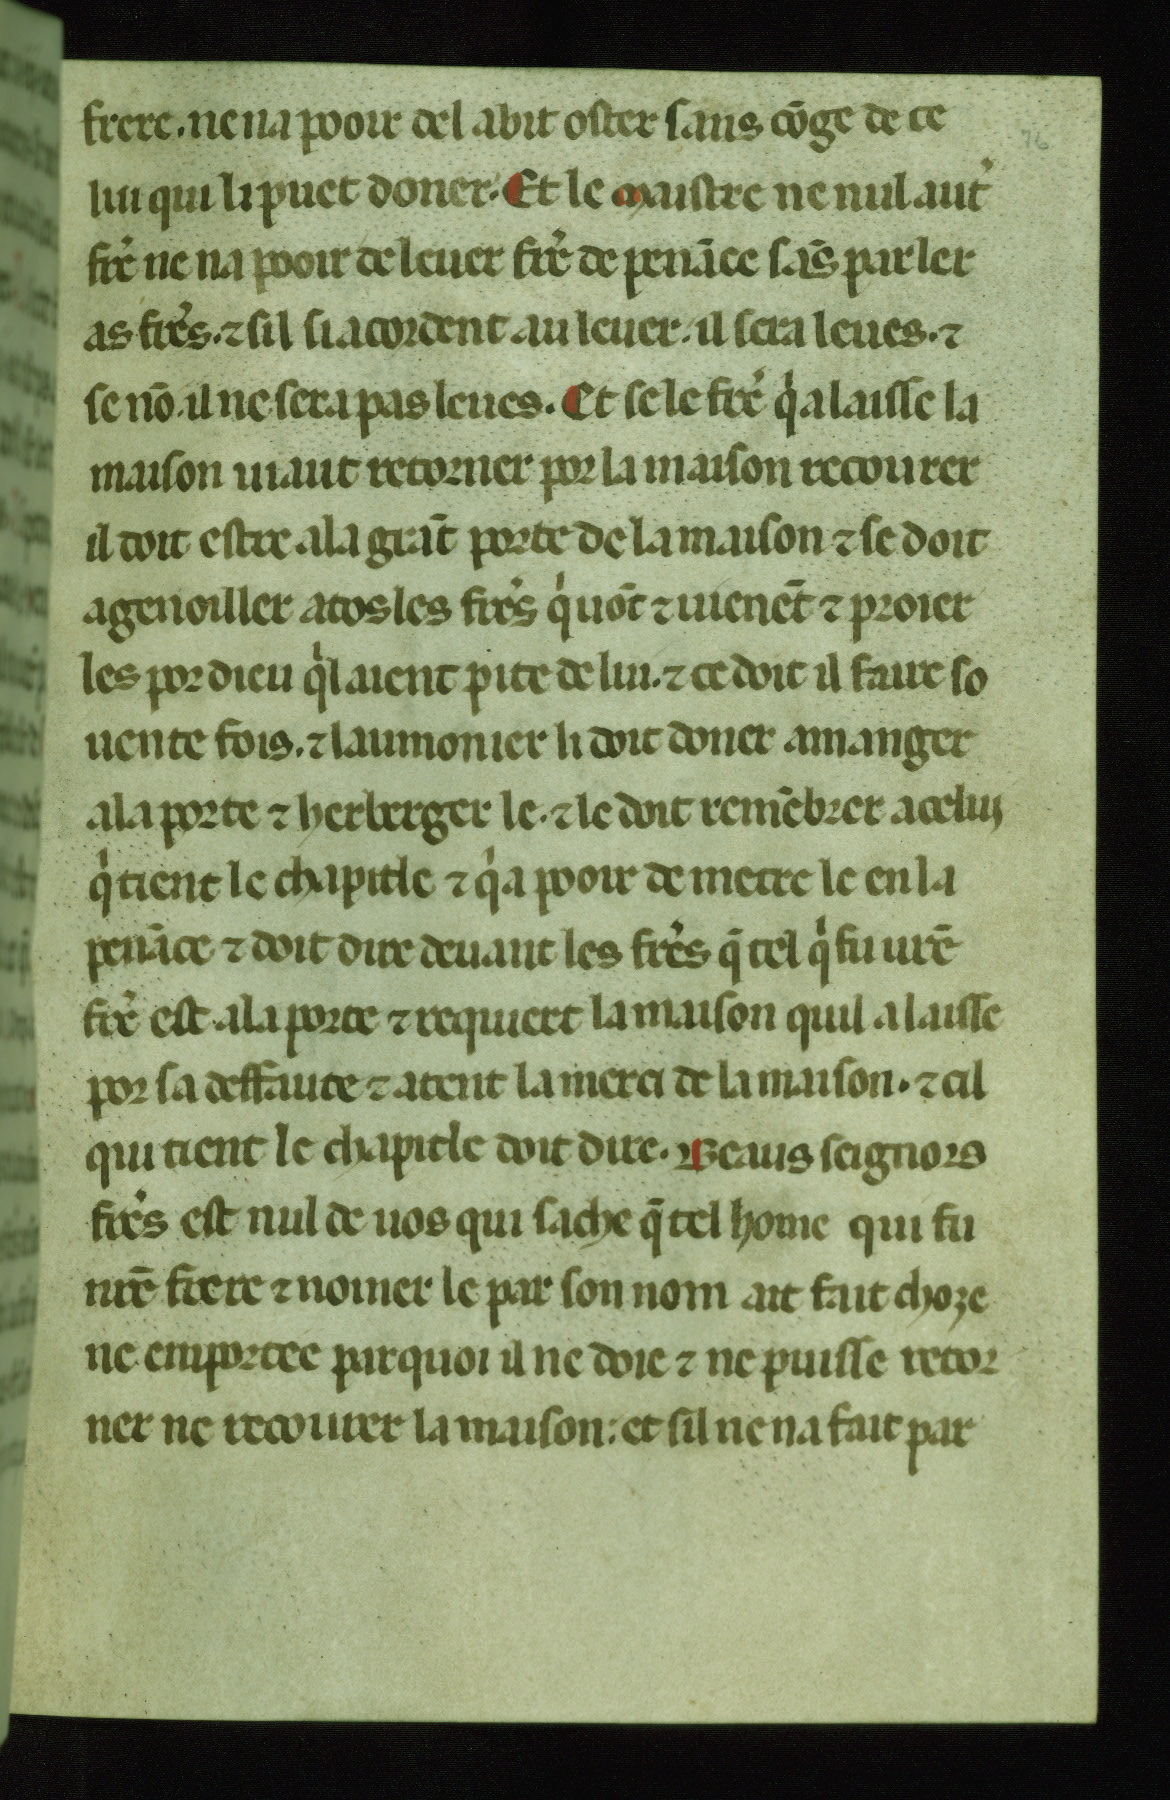 frere. ne na pooir del abit oster sans cōge de ce
lui qui li puet doner. Et le maistre ne nul autʼ
frʼe ne na pooir de leuer frʼe de penāce sās parler
as frʼes. ⁊ sil si acordent au leuer. il sera leues. ⁊
se nō. il ne sera pas leues. Et se le frʼe qͥ a laisse la
maison uiaut retorner por la maison recourer
il doit estre a la grāt porte de la maison ⁊ se doit
agenoiller a tos les frʼes qͥ uōt ⁊ uienēt ⁊ proier
les por dieu qͥl aient pite de lui. ⁊ ce doit il faire so
uente fois. ⁊ laumonier li doit doner a manger
a la porte ⁊ herberger le. ⁊ le doit remēbrer a celui
qͥ tient le chapitle ⁊ qͥ a pooir de metre le en la
penāce ⁊ doit dire deuant les frʼes q̄ tel qͥ fu urē
frʼe est a la porte ⁊ requiert la maison quil a laisse
por sa deffaute ⁊ atent la merci de la maison. ⁊ cil
qui tient le chapitle doit dire. Beaus seignors
frʼes est nul de uos qui sache q̄ tel home qui fu
nrē frere ⁊ nomer le par son nom ait fait choze
ne emportee par quoi il ne doie ⁊ ne puisse retor
ner ne recourer la maison: et sil ne na fait par